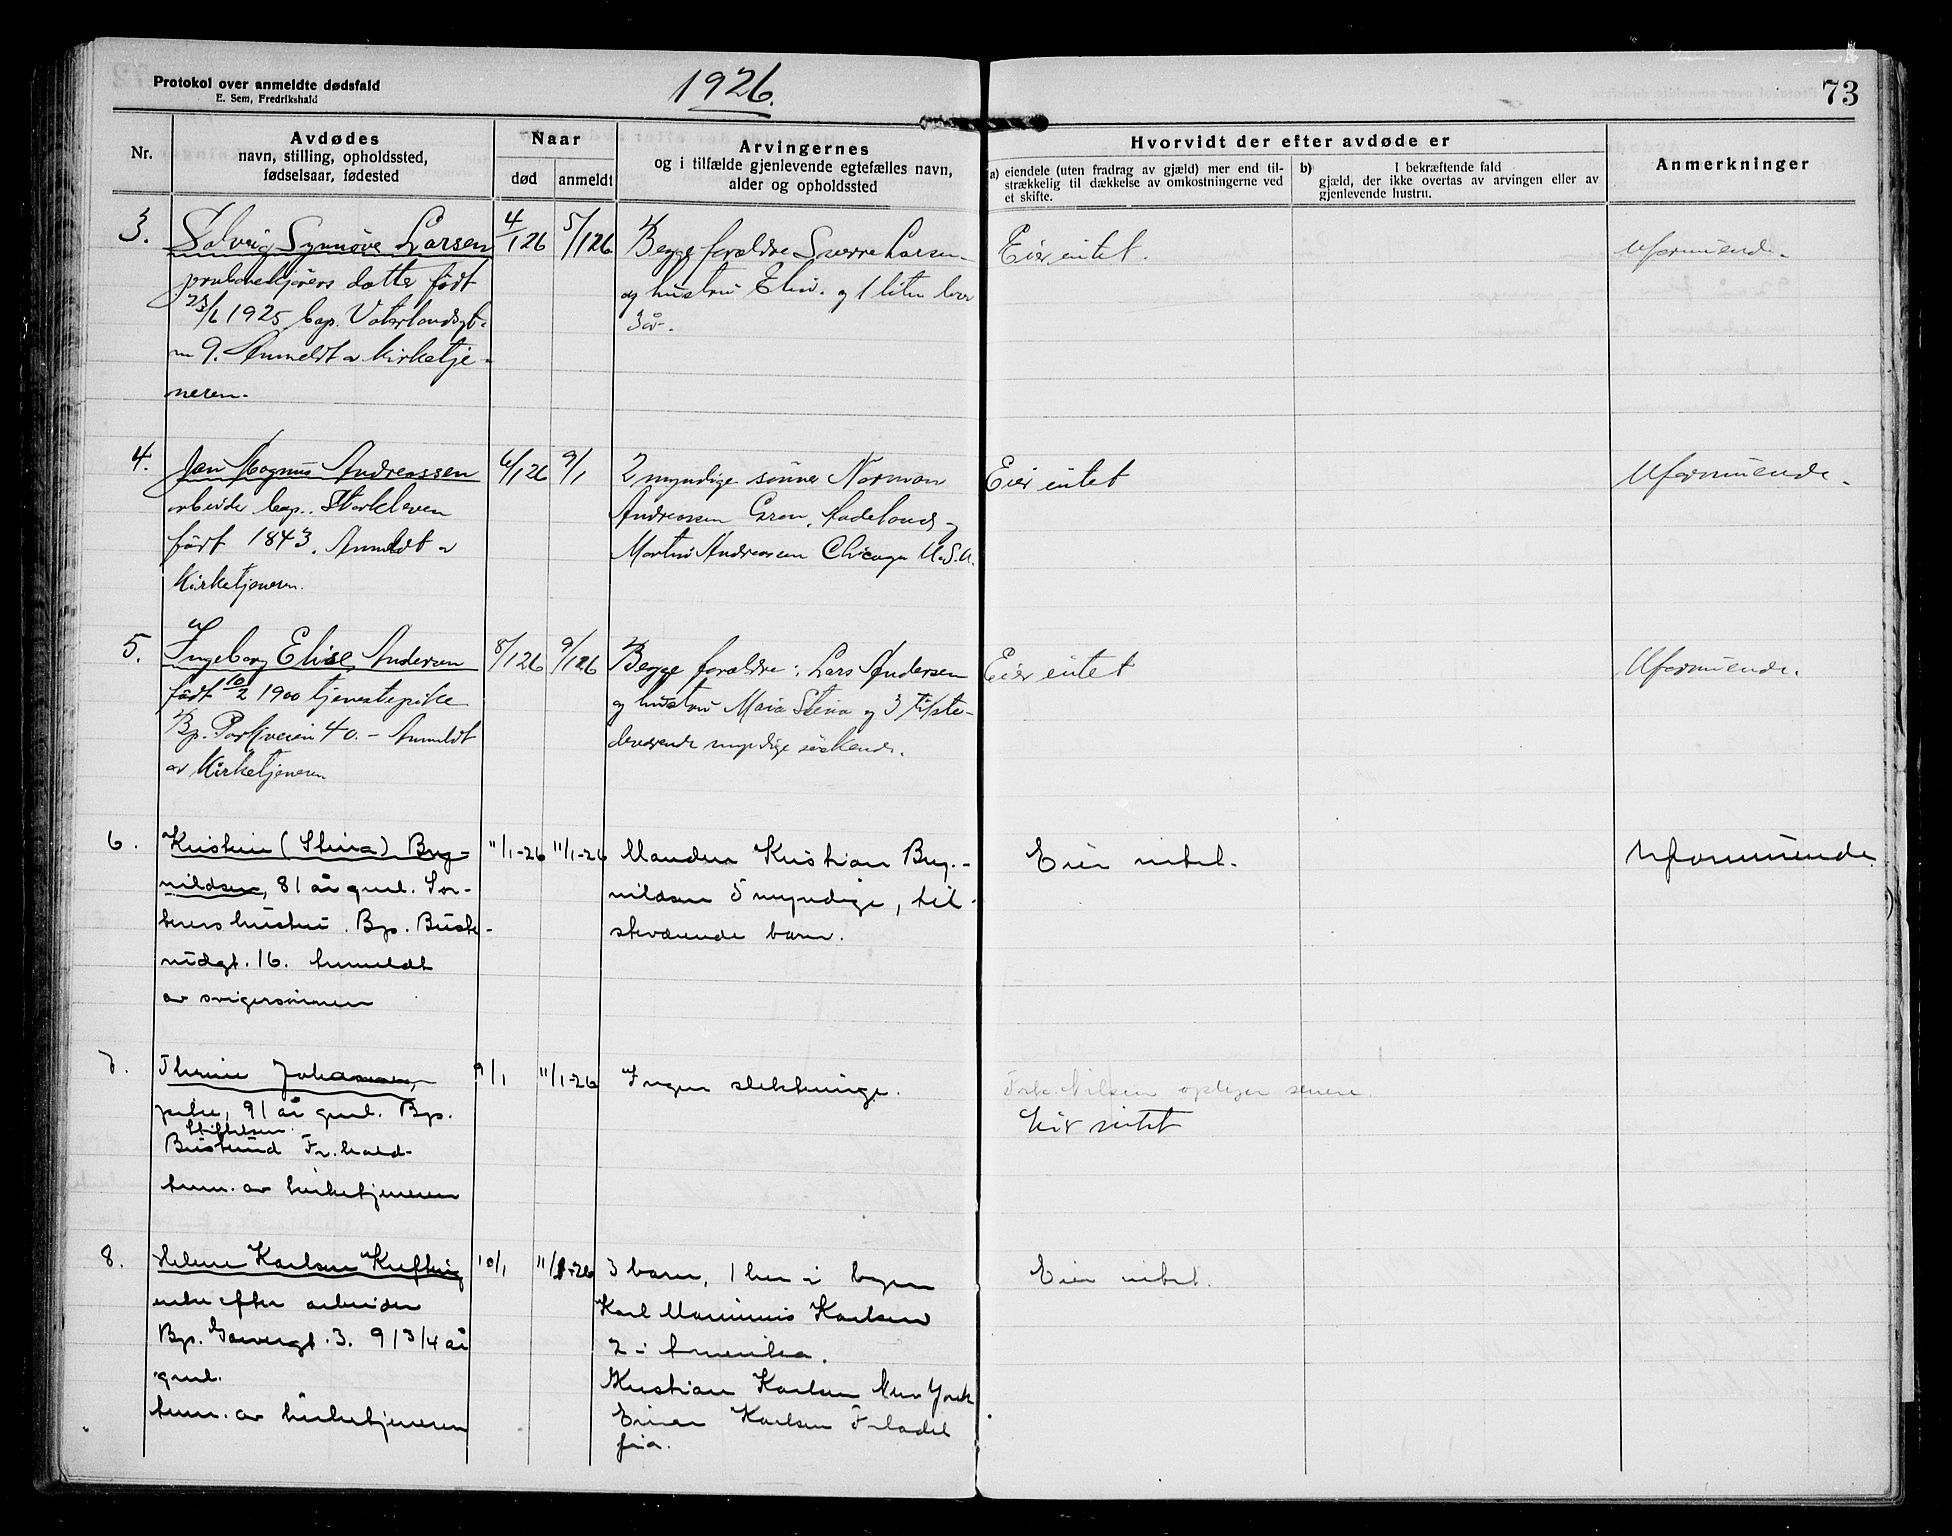 Protokol over anmeldte dødsfald
E. Sem, Fredrikshald
1926.
73
Nr.
Avdødes
navn, stilling, opholdssted,
fødselsaar, fødested
Naar
død
anmeldt
Arvingernes
og i tilfælde gjenlevende egtefælles navn,
alder og opholdssted
Hvorvidt der efter avdøde er
a) eiendele (uten fradrag av gjæld) mer end til-
strækkelig til dækkelse av omkostningerne ved
et skifte.
b) I bekræftende fald
gjæld, der ikke overtas av arvingen eller av
gjenlevende hustru.
Anmerkninger
3.
Solveig Synnøve Larsen
datter født
1925 bop. Vaterlandsgt.
9. Anmeldt av kirketje-
neren.
4/1 26
5/1 26
Begge forældre Sverre Larsen
og hustru og 1 liten bror
3 år.
Eier intet.
Uformuende.
4.
Jan Magnus Andreassen
arbeider bop.
født 1843. Anmeldt av
Kirketjeneren.
6/1 26
9/1
2 myndige sønner Norman
Andreassen Gran, Hadeland og
Martin Andreassen Chicago U.S.A.
Eier intet
Uformuende.
5.
Ingeborg Elise Andersen
født 10/2 1900 tjenestepike
Bp. Parkveien 40. - Anmeldt
av Kirketjeneren
8/1 26
9/1 26
Begge forældre: Lars Andersen
og hustru Maria Stina og 3 tilste-
deværende myndige søskende.
Eier intet
Uformuende.
6.
Kristine (Stina) Bryn-
nildsen, 81 år gml.
hustru. Bp. Buste-
rudgt. 16. Anmeldt
av svigersønnen
11/1-26
11/1-26
Manden Kristian Bryn-
nildsen 5 myndige, til-
steværende barn.
Eier intet.
Uformuende.
7.
Thrine Johansen,
pike, 91 år gml. Bp.
Stiftelsen
Busterud Fr.hald-
Anm. av kirketjeneren
9/1
11/1-26
Ingen slektninge.
Frk. Nilsen opkyer senere.
Eier intet
8.
Helene Karlsen Krefting
enke efter arbeider
Bp. Garvergt. 3. 91 3/4 år
gml.
Anm. av kirketjeneren
10/1
11/1-26
3 barn, 1 her i byen
Karl Marinius Karlsen
2 i Amerika.
Kristian Karlsen New York
Einar Karlsen Filadel
fia.
Eier intet.